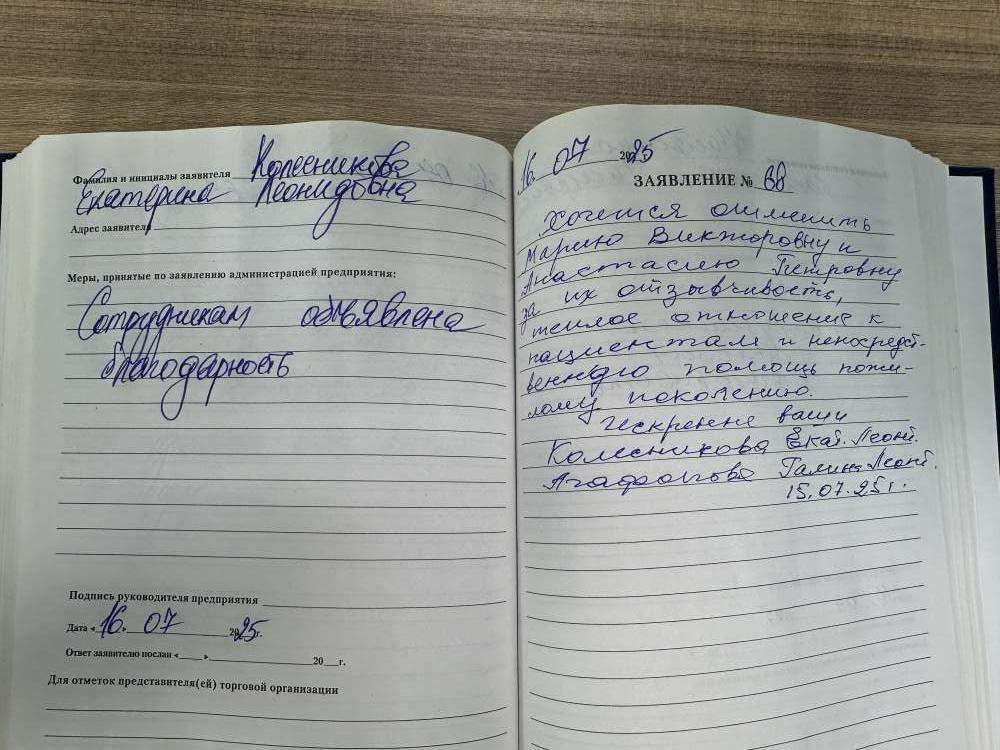 Фамилия и инициалы заявителя Колесникова
Екатерина Леонидовна
Адрес заявителя
Меры, принятые по заявлению администрацией предприятия:
Сотрудникам объявлена
благодарность
Подпись руководителя предприятия
Дата «16» 07 2025г.
Ответ заявителю послан «    » 20   г.
Для отметок представителя(ей) торговой организации
16. 07 2025
ЗАЯВЛЕНИЕ № 88
Хочется отметить
Марию Викторовну и
Анастасию Петровну
за их отзывчивость,
теплое отношение к
пациентам и непосредст-
венную помощь пожи-
лому поколению.
Искренне ваши
Колесникова Екат. Леонт.
Агафонова Галина Леонт.
15.07.25 г.